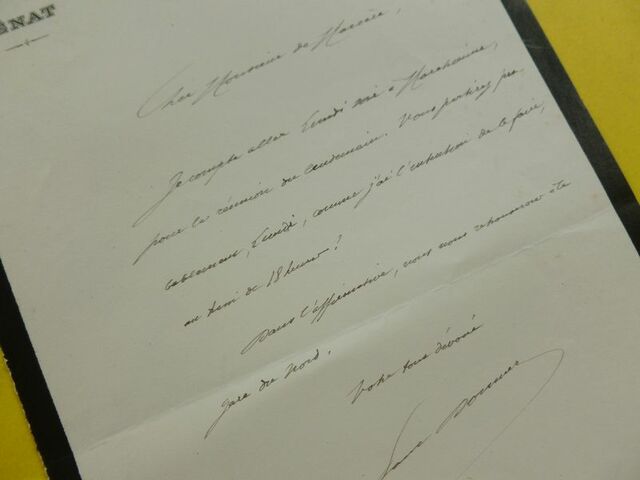 ÉNAT
Cher Monsieur de
Je compte aller lundi soir à
pour la réunion du lendemain. Vous partirez pro
bablement, lundi, comme j'ai l'intention de le faire,
au train de 18 heures ?
Dans l'affirmative, nous nous retrouverons à la
gare du Nord.
Votre tout dévoué
Paul Doumer